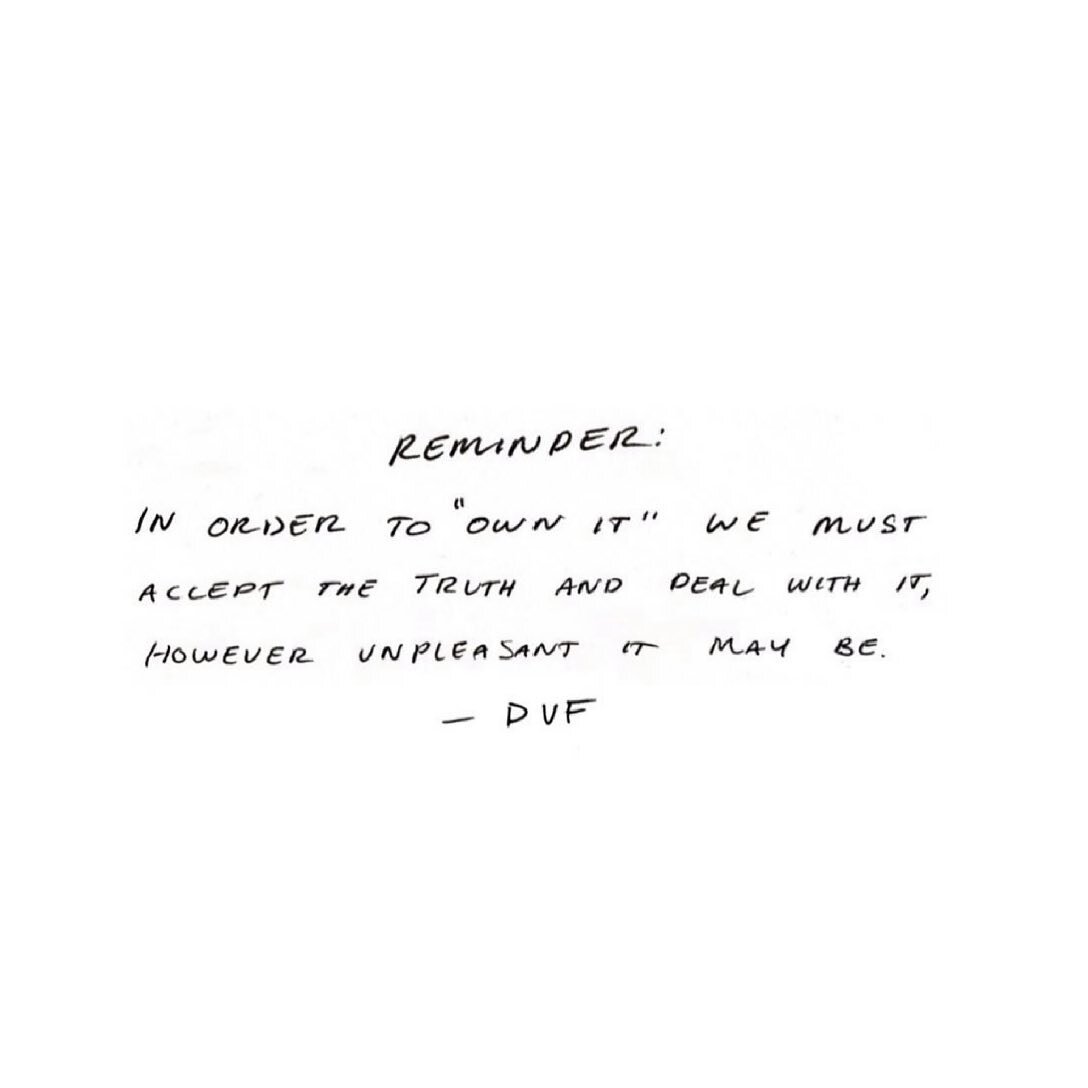 REMINDER:
IN ORDER TO "OWN IT" WE MUST
ACCEPT THE TRUTH AND DEAL WITH IT,
HOWEVER UNPLEASANT IT MAY BE.
— DVF